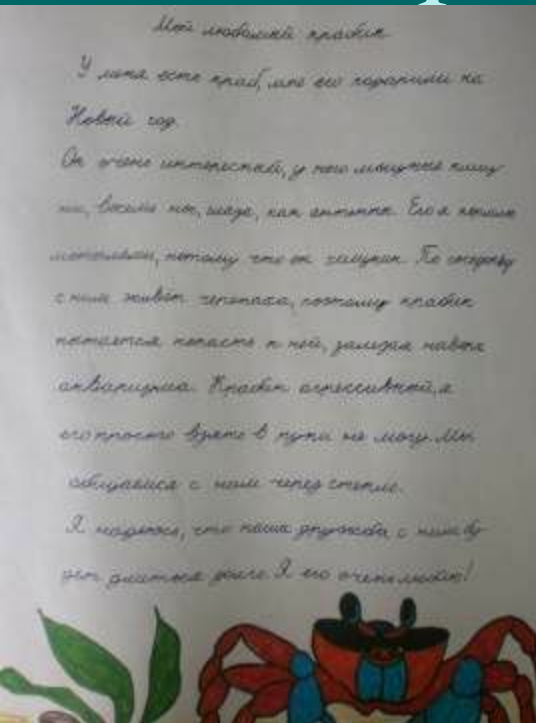 Мой любимый крабик
У меня есть краб, мне его подарили на
Новый год.
Он очень интересный, у него мощные клеш
ни, восемь ног, глаза, как антенны. Его я кормлю
мотылями, потому что он хищник. По соседству
с ним живёт черепаха, поэтому крабик
пытается попасть к ней, залезая наверх
аквариума. Крабик агрессивный, я
его просто взять в руки не могу. Мы
общаемся с ним через стекло.
Я надеюсь, что наша дружба с ним бу
дет длиться долго. Я его очень люблю!